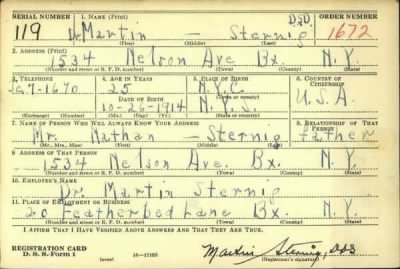 SERIAL NUMBER 1. NAME (Print) DSD. ORDER NUMBER
119 Dr Martin — Sternig 1672
(First) (Middle) (Last)
2. ADDRESS (Print)
1534 Nelson Ave Bx. N.Y.
(Number and street or R. F. D. number) (Town) (County) (State)
3. TELEPHONE 4. AGE IN YEARS 5. PLACE OF BIRTH 6. COUNTRY OF CITIZENSHIP
7-1670 25 N.Y.C.
DATE OF BIRTH (Town or county)
10-26-1914 N.Y.S. U.S.A.
(Exchange) (Number) (Mo.) (Day) (Yr.) (State or country)
7. NAME OF PERSON WHO WILL ALWAYS KNOW YOUR ADDRESS 8. RELATIONSHIP OF THAT PERSON
Mr. Nathan — Sternig father
(Mr., Mrs., Miss) (First) (Middle) (Last)
9. ADDRESS OF THAT PERSON
1534 Nelson Ave. Bx. N.Y.
(Number and street or R. F. D. number) (Town) (County) (State)
10. EMPLOYER'S NAME
Dr. Martin Sternig
11. PLACE OF EMPLOYMENT OR BUSINESS
20 Featherbed Lane Bx. N.Y.
(Number and street or R. F. D. number) (Town) (County) (State)
I AFFIRM THAT I HAVE VERIFIED ABOVE ANSWERS AND THAT THEY ARE TRUE.
REGISTRATION CARD
D. S. S. Form 1 (over) 16—17105 Martin Sternig, DDS
(Registrant's signature)